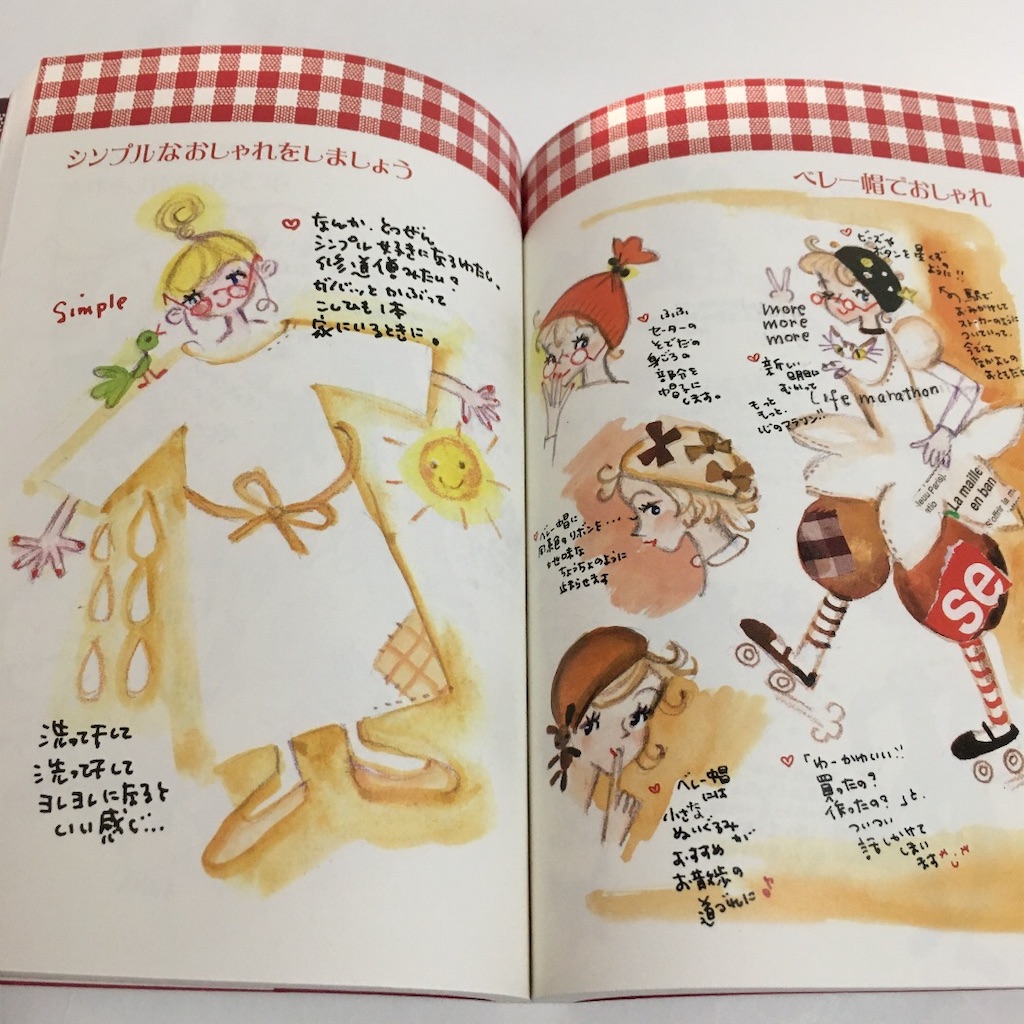 シンプルなおしゃれをしましょう
Simple
なんか、とつぜん
シンプル好きになるわたし。
修道僧みたい?
ガバッとかぶって
こしひも1本
家にいるときに。
洗って干して
洗って干して
ヨレヨレになると
いい感じ…
ベレー帽でおしゃれ
ふふふ
セーターの
そでだの
身ごろの
部分を
帽子に
します。
ビーズや
ボタンを星くずの
ように!!
more
more
more
駅で
おみかけして
ストーカーのように
ついていって、
今では
なかよしの
おともだち
新しい
明日に
むかって
もっと
もっと、
Life marathon
ベレー帽に
同系色のリボンを・・・
地味な
ちょうちょのように
止まらせます
La maille
en ban
se
ベレー帽
には
小さな
ぬいぐるみ
が
おすすめ
お散歩の
道づれに
「わーかわいい!!
買ったの?
作ったの?」と、
ついつい
話しかけて
しまい
ます